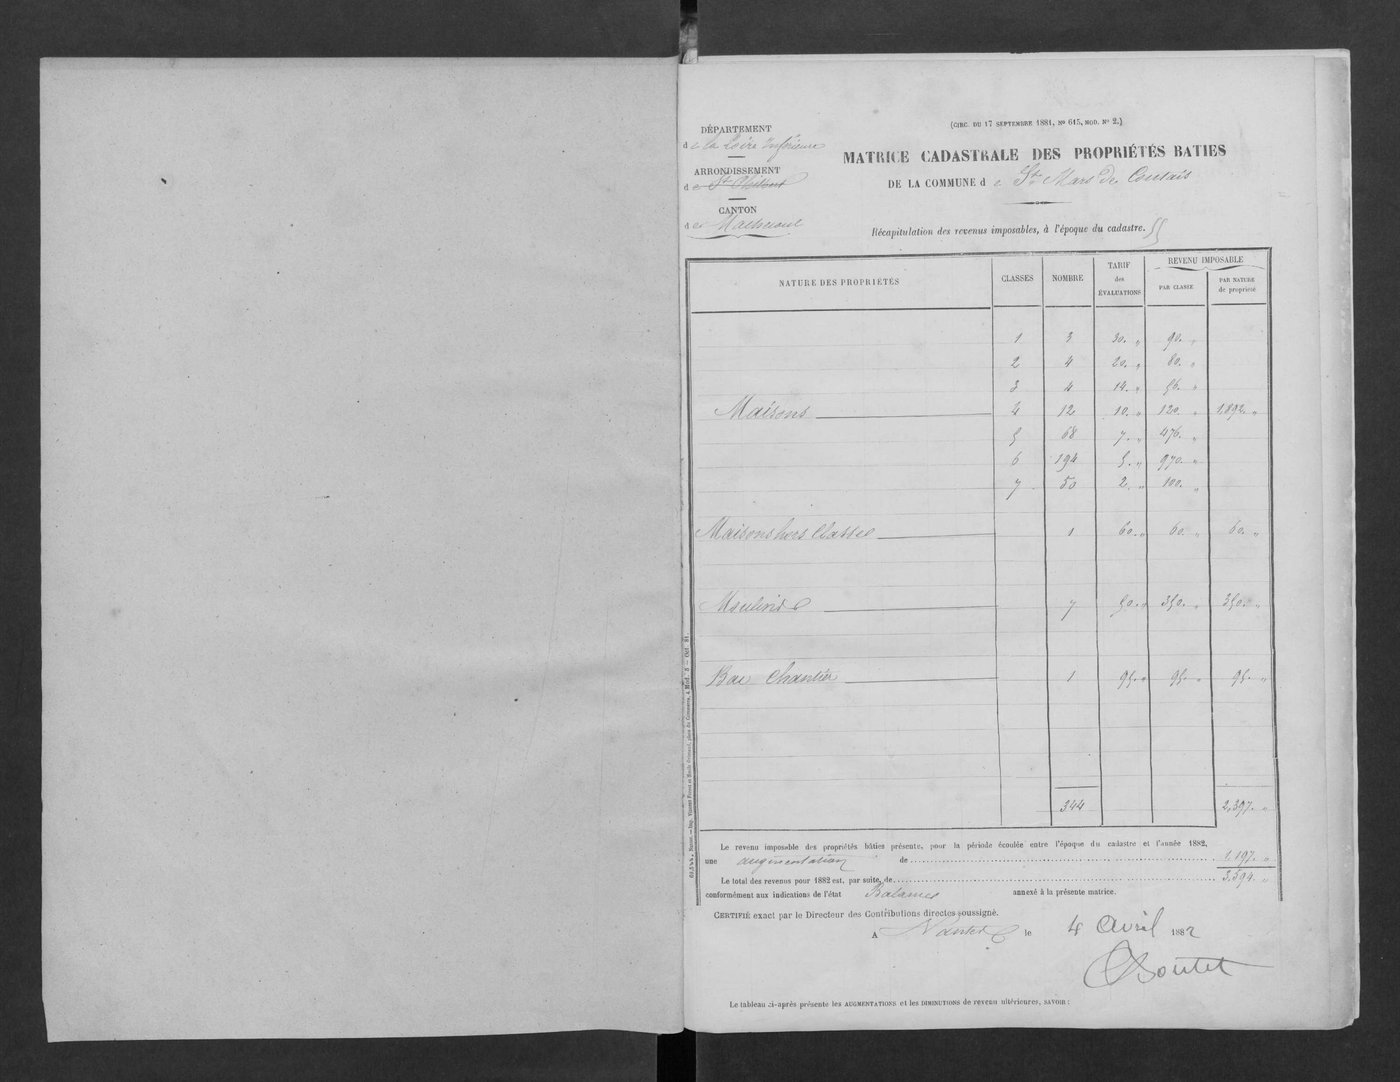 (CIRC. DU 17 SEPTEMBRE 1881, No 615, MOD. No 2.)
DÉPARTEMENT
de la Loire Inférieure
ARRONDISSEMENT
de St Philbert
CANTON
de Machecoul
MATRICE CADASTRALE DES PROPRIÉTÉS BATIES
DE LA COMMUNE de St Mars de Coutais
Récapitulation des revenus imposables, à l'époque du cadastre.
NATURE DES PROPRIÉTÉS CLASSES NOMBRE TARIF des ÉVALUATIONS REVENU IMPOSABLE
PAR CLASSE PAR NATURE de propriété
1 3 30. " 90. "
2 4 20. " 80. "
3 4 14. " 56. "
Maisons 4 12 10. " 120. " 1.892. "
5 68 7. " 476. "
6 194 5. " 970. "
7 50 2. " 100. "
Maisons hors Classe 1 60. " 60. " 60. "
Moulins 7 50. " 350. " 350. "
Bac Chantier 1 95. " 95. " 95. "
344 2.397. "
Le revenu imposable des propriétés bâties présente, pour la période écoulée entre l'époque du cadastre et l'année 1882,
une augmentation de 1.197. "
Le total des revenus pour 1882 est, par suite, de 3.594. "
conformément aux indications de l'état Balance annexé à la présente matrice.
CERTIFIÉ exact par le Directeur des Contributions directes soussigné.
A Nantes le 4 avril 1882
Boutet
Le tableau ci-après présente les AUGMENTATIONS et les DIMINUTIONS de revenu ultérieures, SAVOIR :